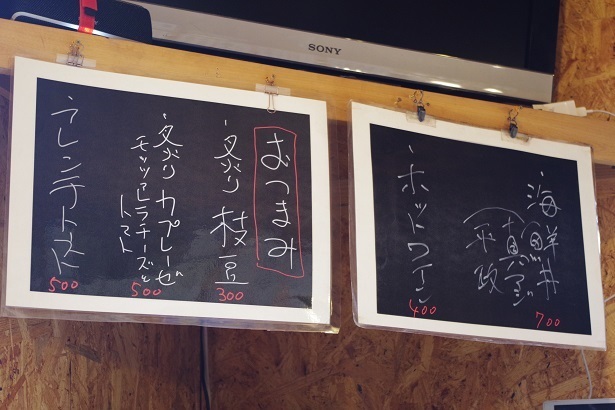 SONY
おつまみ
・炙り枝豆
300
・炙りカプレーゼ
モッツアレラチーズと
トマト
500
・フレンチトースト
500
・海鮮丼
700
平政
・ホットワイン
400